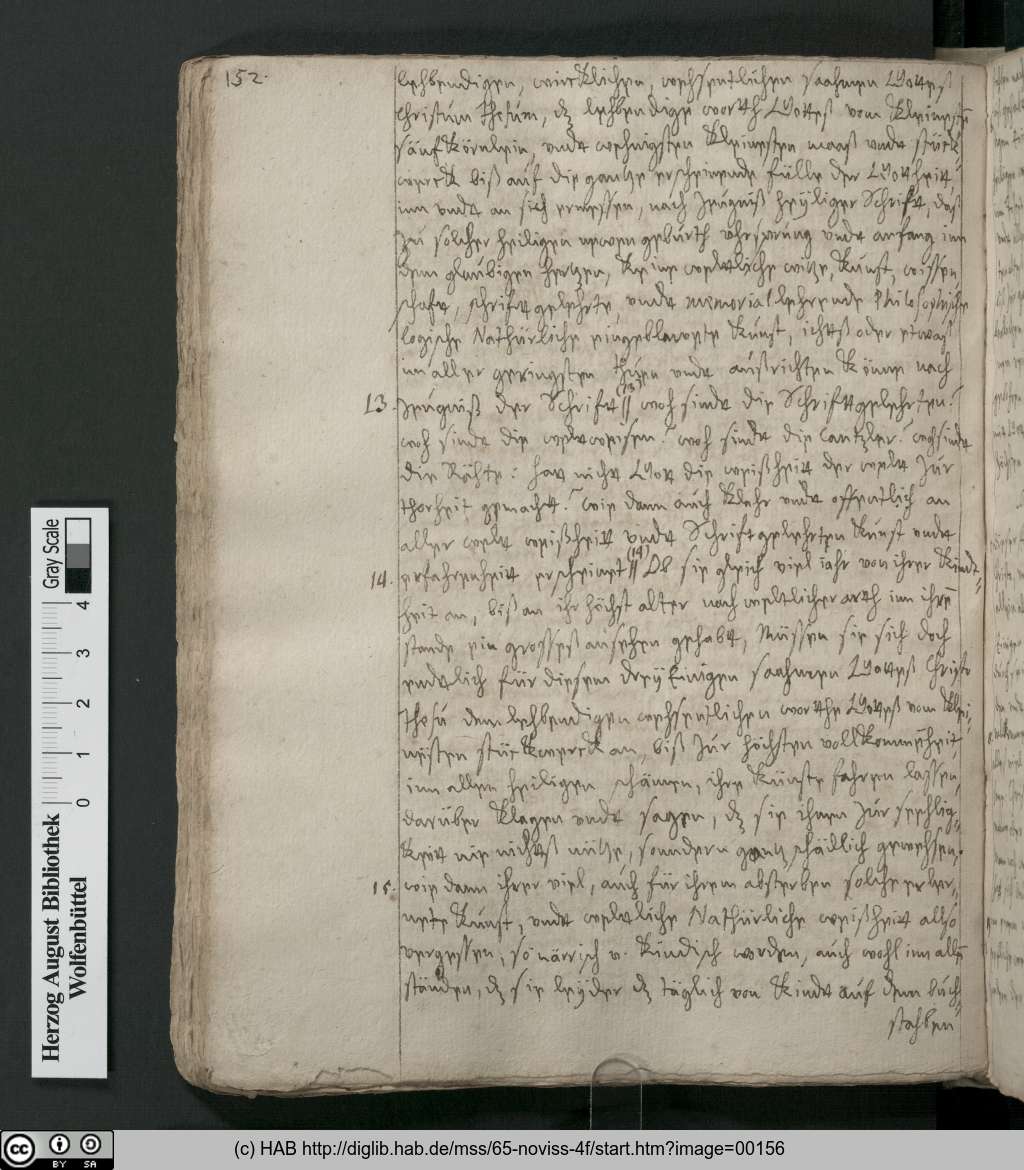 152.
lehbendigen, wircklichen, wehsentlichen saahmen Gotteß
Christum Jhesum, dz lehbendige worth Gotteß vom kleinesten
säufkörnlein, undt wehnigsten kleinesten maaß undt stück-
werck biß auf die gantze erscheinende fülle der Gottheit,
inn undt an sich ermessen, nach Zeugniß heyliger Schrift, daß
zu solcher heiligen newen geburth uhrsprung undt anfang inn
dem glaubigen hertzen, keine weltliche witze, kunst, wissen
schaft, schriftgelehrte, undt memorial lehrende Philosophische
logische Nathürliche eingeblawete kunst, ichtß oder etwaß
im aller geringsten thuen undt außrichten könne nach
13. Zeugniß der Schrift (13) woh sindt die Schriftgelehrten?
woh sindt die weltweisen? woh sindt die Cantzler? woh sindt
die Rähte? hat nicht Gott die weißheit der welt zur
thorheit gemacht? wie dann auch klahr undt offentlich an
aller welt weißheit undt Schriftgelehrten kunst undt
14. erfahrenheit erscheinet (14) Ob sie gleich viel iahr von ihrer kindt-
heit an, biß an ihr höchst alter nach weltlicher arth inn ihrē
stande ein grosseß ansehen gehabt, Müssen sie sich doch
endtlich für diesem dreyEinigen saahmen Gotteß Christo
Jhesu dem lehbendigen wehsentlichen worthe Gotteß vom klei-
nesten stückwerck an, biß zur höchsten vollkommēheit
inn allen heiligen schämen, ihre künste fahren lassen,
darüber klagen undt sagen, dz sie ihnen zur seehlig-
keit nie nichtß nütze, sonndern gantz schädlich gewehsen,
15. wie dann ihrer viel, auch für ihrem absterben solche erler-
nete kunst, undt weltliche Nathürliche weißheit allso
vergessen, so närrisch v. kindisch worden, auch wohl inn allē
ständen, dz sie leyder dz täglich von kindt auf dem buch-
stahben
Herzog August Bibliothek
Wolfenbüttel
0 1 2 3 4
Gray Scale
BY SA
(c) HAB http://diglib.hab.de/mss/65-noviss-4f/start.htm?image=00156